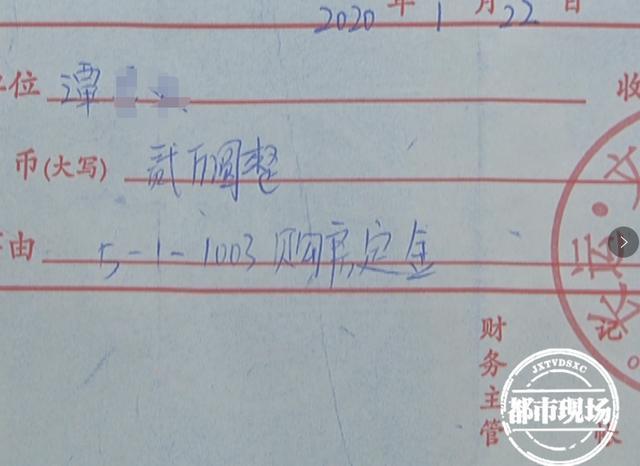 2020 年 1 月 22 日
位 潭 收
币(大写) 贰万圆整
由 5-1-1003 购房定金
财务主管
记
帐
JXTVDSXC
都市现场